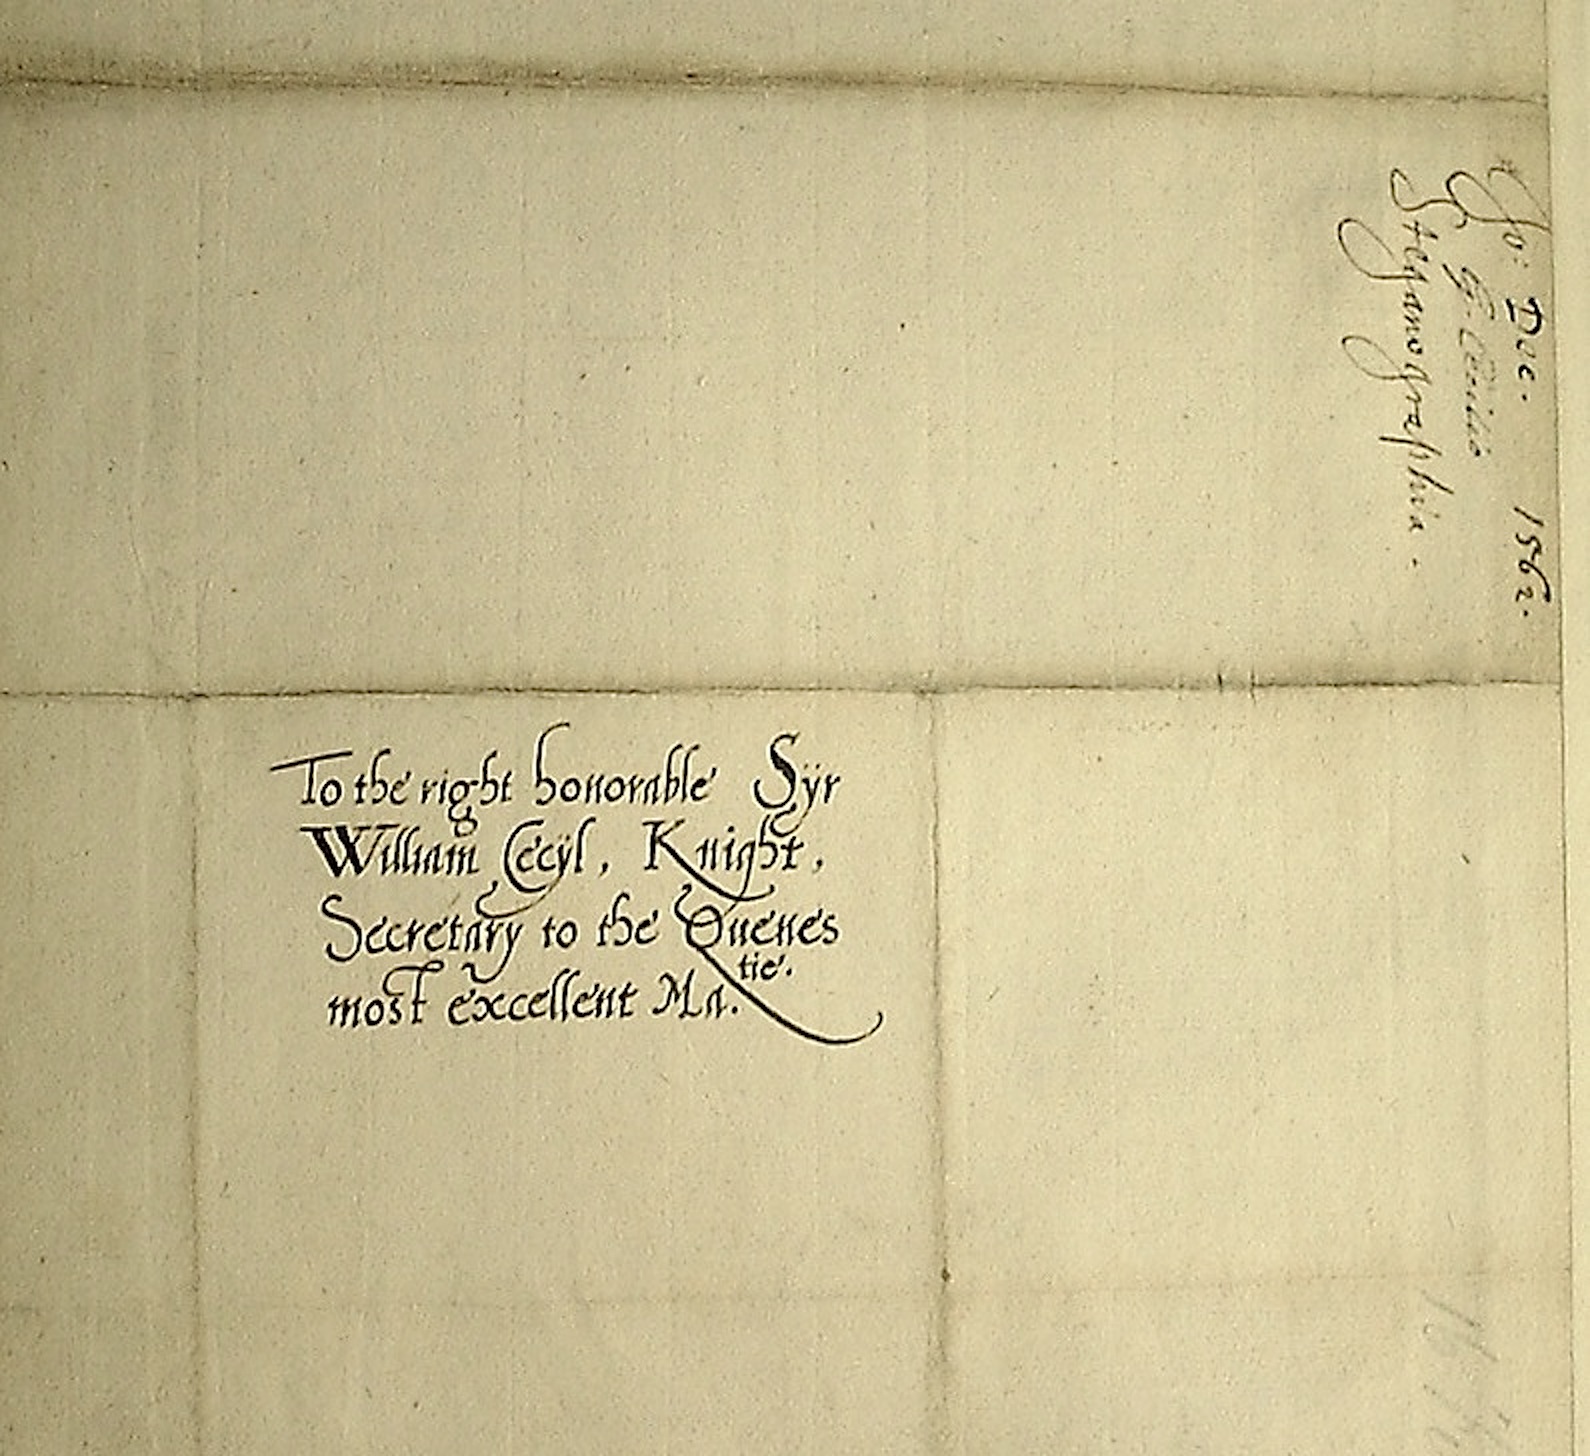 To the right honorable Sÿr
William Cecÿl, Knight,
Secretary to the Quenes
most excellent Ma.tie.
Jo: Dee. 1562.
Steganographia.